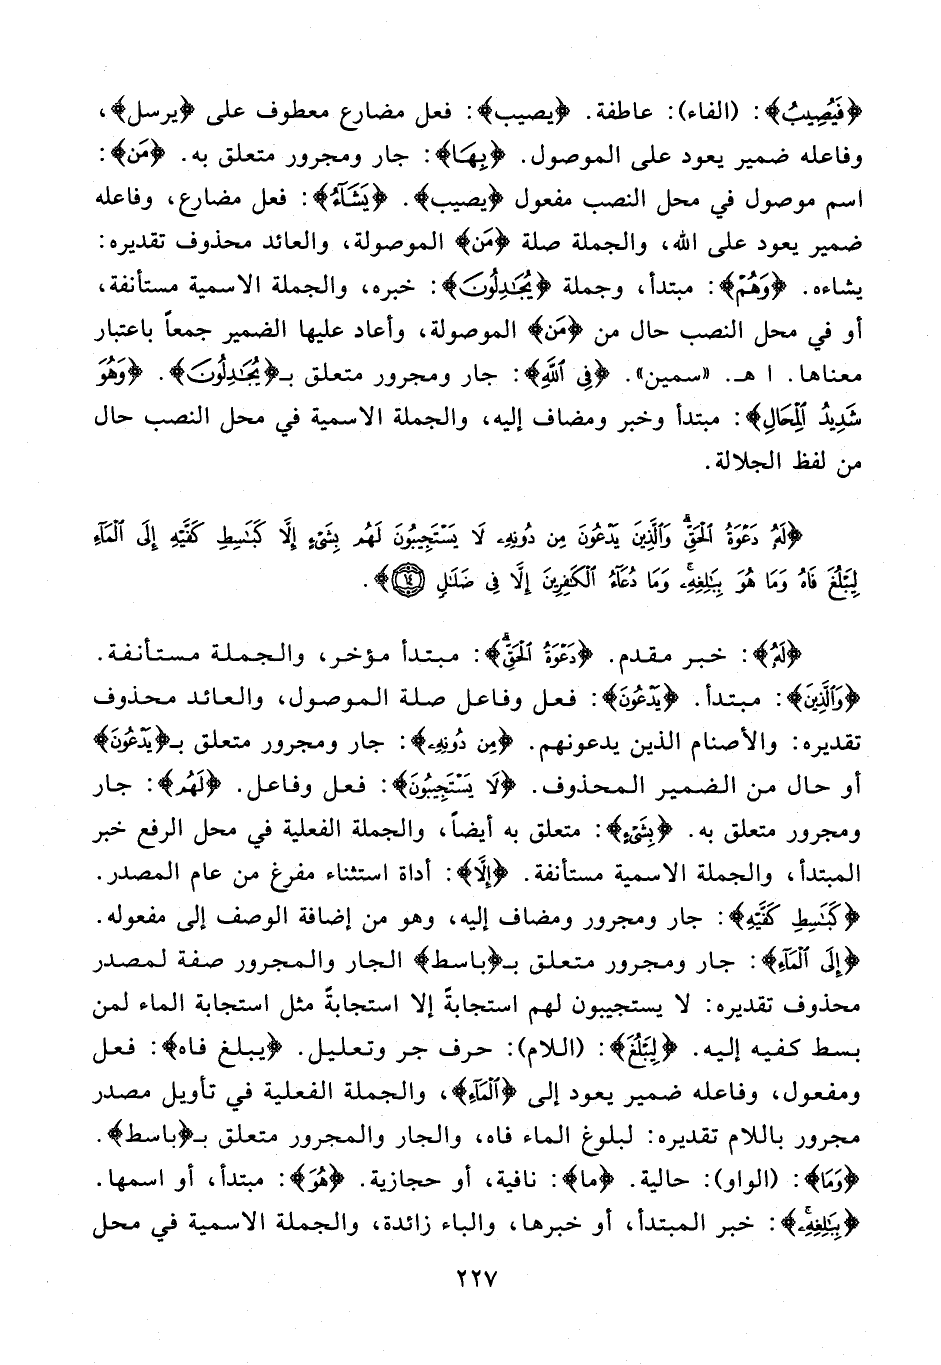 ﴿فَيُصِيبُ﴾: (الفاء): عاطفة. ﴿يصيب﴾: فعل مضارع معطوف على ﴿يرسل﴾،
وفاعله ضمير يعود على الموصول. ﴿بِهَا﴾: جار ومجرور متعلق به. ﴿مَن﴾:
اسم موصول في محل النصب مفعول ﴿يصيب﴾. ﴿يَشَآءُ﴾: فعل مضارع، وفاعله
ضمير يعود على الله، والجملة صلة ﴿مَن﴾ الموصولة، والعائد محذوف تقديره:
يشاءه. ﴿وَهُمْ﴾: مبتدأ، وجملة ﴿يُجَٰدِلُونَ﴾: خبره، والجملة الاسمية مستأنفة،
أو في محل النصب حال من ﴿مَن﴾ الموصولة، وأعاد عليها الضمير جمعاً باعتبار
معناها. ا هـ. «سمين». ﴿فِى ٱللَّهِ﴾: جار ومجرور متعلق بـ﴿يُجَٰدِلُونَ﴾. ﴿وَهُوَ
شَدِيدُ ٱلْمِحَالِ﴾: مبتدأ وخبر ومضاف إليه، والجملة الاسمية في محل النصب حال
من لفظ الجلالة.
﴿لَهُۥ دَعْوَةُ ٱلْحَقِّ ۖ وَٱلَّذِينَ يَدْعُونَ مِن دُونِهِۦ لَا يَسْتَجِيبُونَ لَهُم بِشَىْءٍ إِلَّا كَبَٰسِطِ كَفَّيْهِ إِلَى ٱلْمَآءِ
لِيَبْلُغَ فَاهُ وَمَا هُوَ بِبَٰلِغِهِۦ ۚ وَمَا دُعَآءُ ٱلْكَٰفِرِينَ إِلَّا فِى ضَلَٰلٍ ١٤﴾.
﴿لَهُۥ﴾: خبر مقدم. ﴿دَعْوَةُ ٱلْحَقِّ ۖ﴾: مبتدأ مؤخر، والجملة مستأنفة.
﴿وَٱلَّذِينَ﴾: مبتدأ. ﴿يَدْعُونَ﴾: فعل وفاعل صلة الموصول، والعائد محذوف
تقديره: والأصنام الذين يدعونهم. ﴿مِن دُونِهِۦ﴾: جار ومجرور متعلق بـ﴿يَدْعُونَ﴾
أو حال من الضمير المحذوف. ﴿لَا يَسْتَجِيبُونَ﴾: فعل وفاعل. ﴿لَهُم﴾: جار
ومجرور متعلق به. ﴿بِشَىْءٍ﴾: متعلق به أيضاً، والجملة الفعلية في محل الرفع خبر
المبتدأ، والجملة الاسمية مستأنفة. ﴿إِلَّا﴾: أداة استثناء مفرغ من عام المصدر.
﴿كَبَٰسِطِ كَفَّيْهِ﴾: جار ومجرور ومضاف إليه، وهو من إضافة الوصف إلى مفعوله.
﴿إِلَى ٱلْمَآءِ﴾: جار ومجرور متعلق بـ﴿باسط﴾ الجار والمجرور صفة لمصدر
محذوف تقديره: لا يستجيبون لهم استجابةً إلا استجابةً مثل استجابة الماء لمن
بسط كفيه إليه. ﴿لِيَبْلُغَ﴾: (اللام): حرف جر وتعليل. ﴿يبلغ فاه﴾: فعل
ومفعول، وفاعله ضمير يعود إلى ﴿ٱلْمَآءِ﴾، والجملة الفعلية في تأويل مصدر
مجرور باللام تقديره: لبلوغ الماء فاه، والجار والمجرور متعلق بـ﴿باسط﴾.
﴿وَمَا﴾: (الواو): حالية. ﴿ما﴾: نافية، أو حجازية. ﴿هُوَ﴾: مبتدأ، أو اسمها.
﴿بِبَٰلِغِهِۦ ۚ﴾: خبر المبتدأ، أو خبرها، والباء زائدة، والجملة الاسمية في محل
٢٢٧